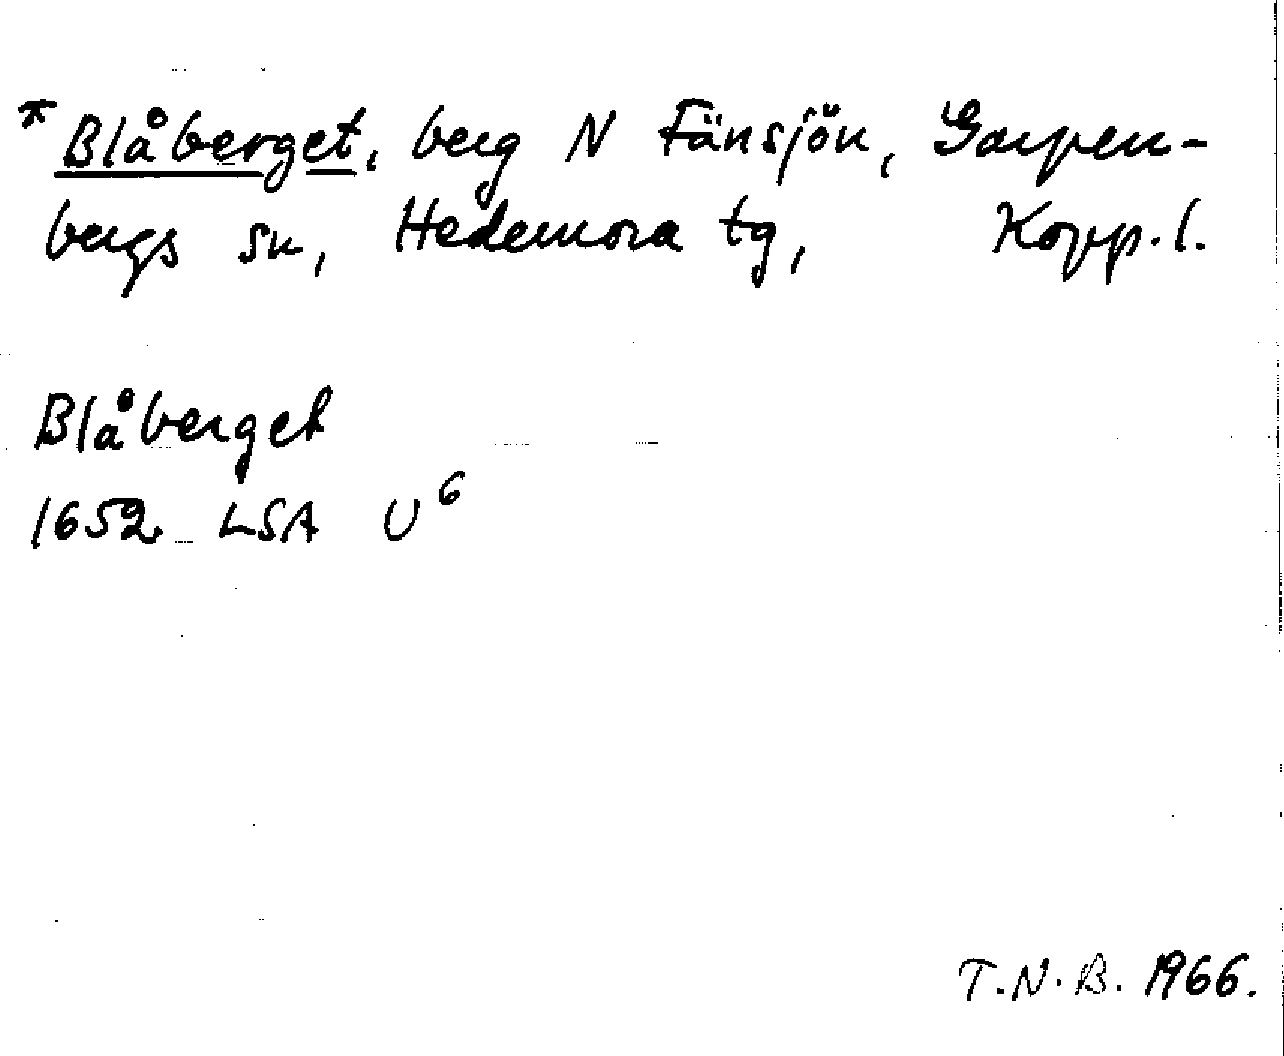 *Blåberget, berg N Fänsjön, Garpen-
bergs sn, Hedemora tg, Kopp.l.
Blåberget
1652 LSA U⁶
T.N.B. 1966.